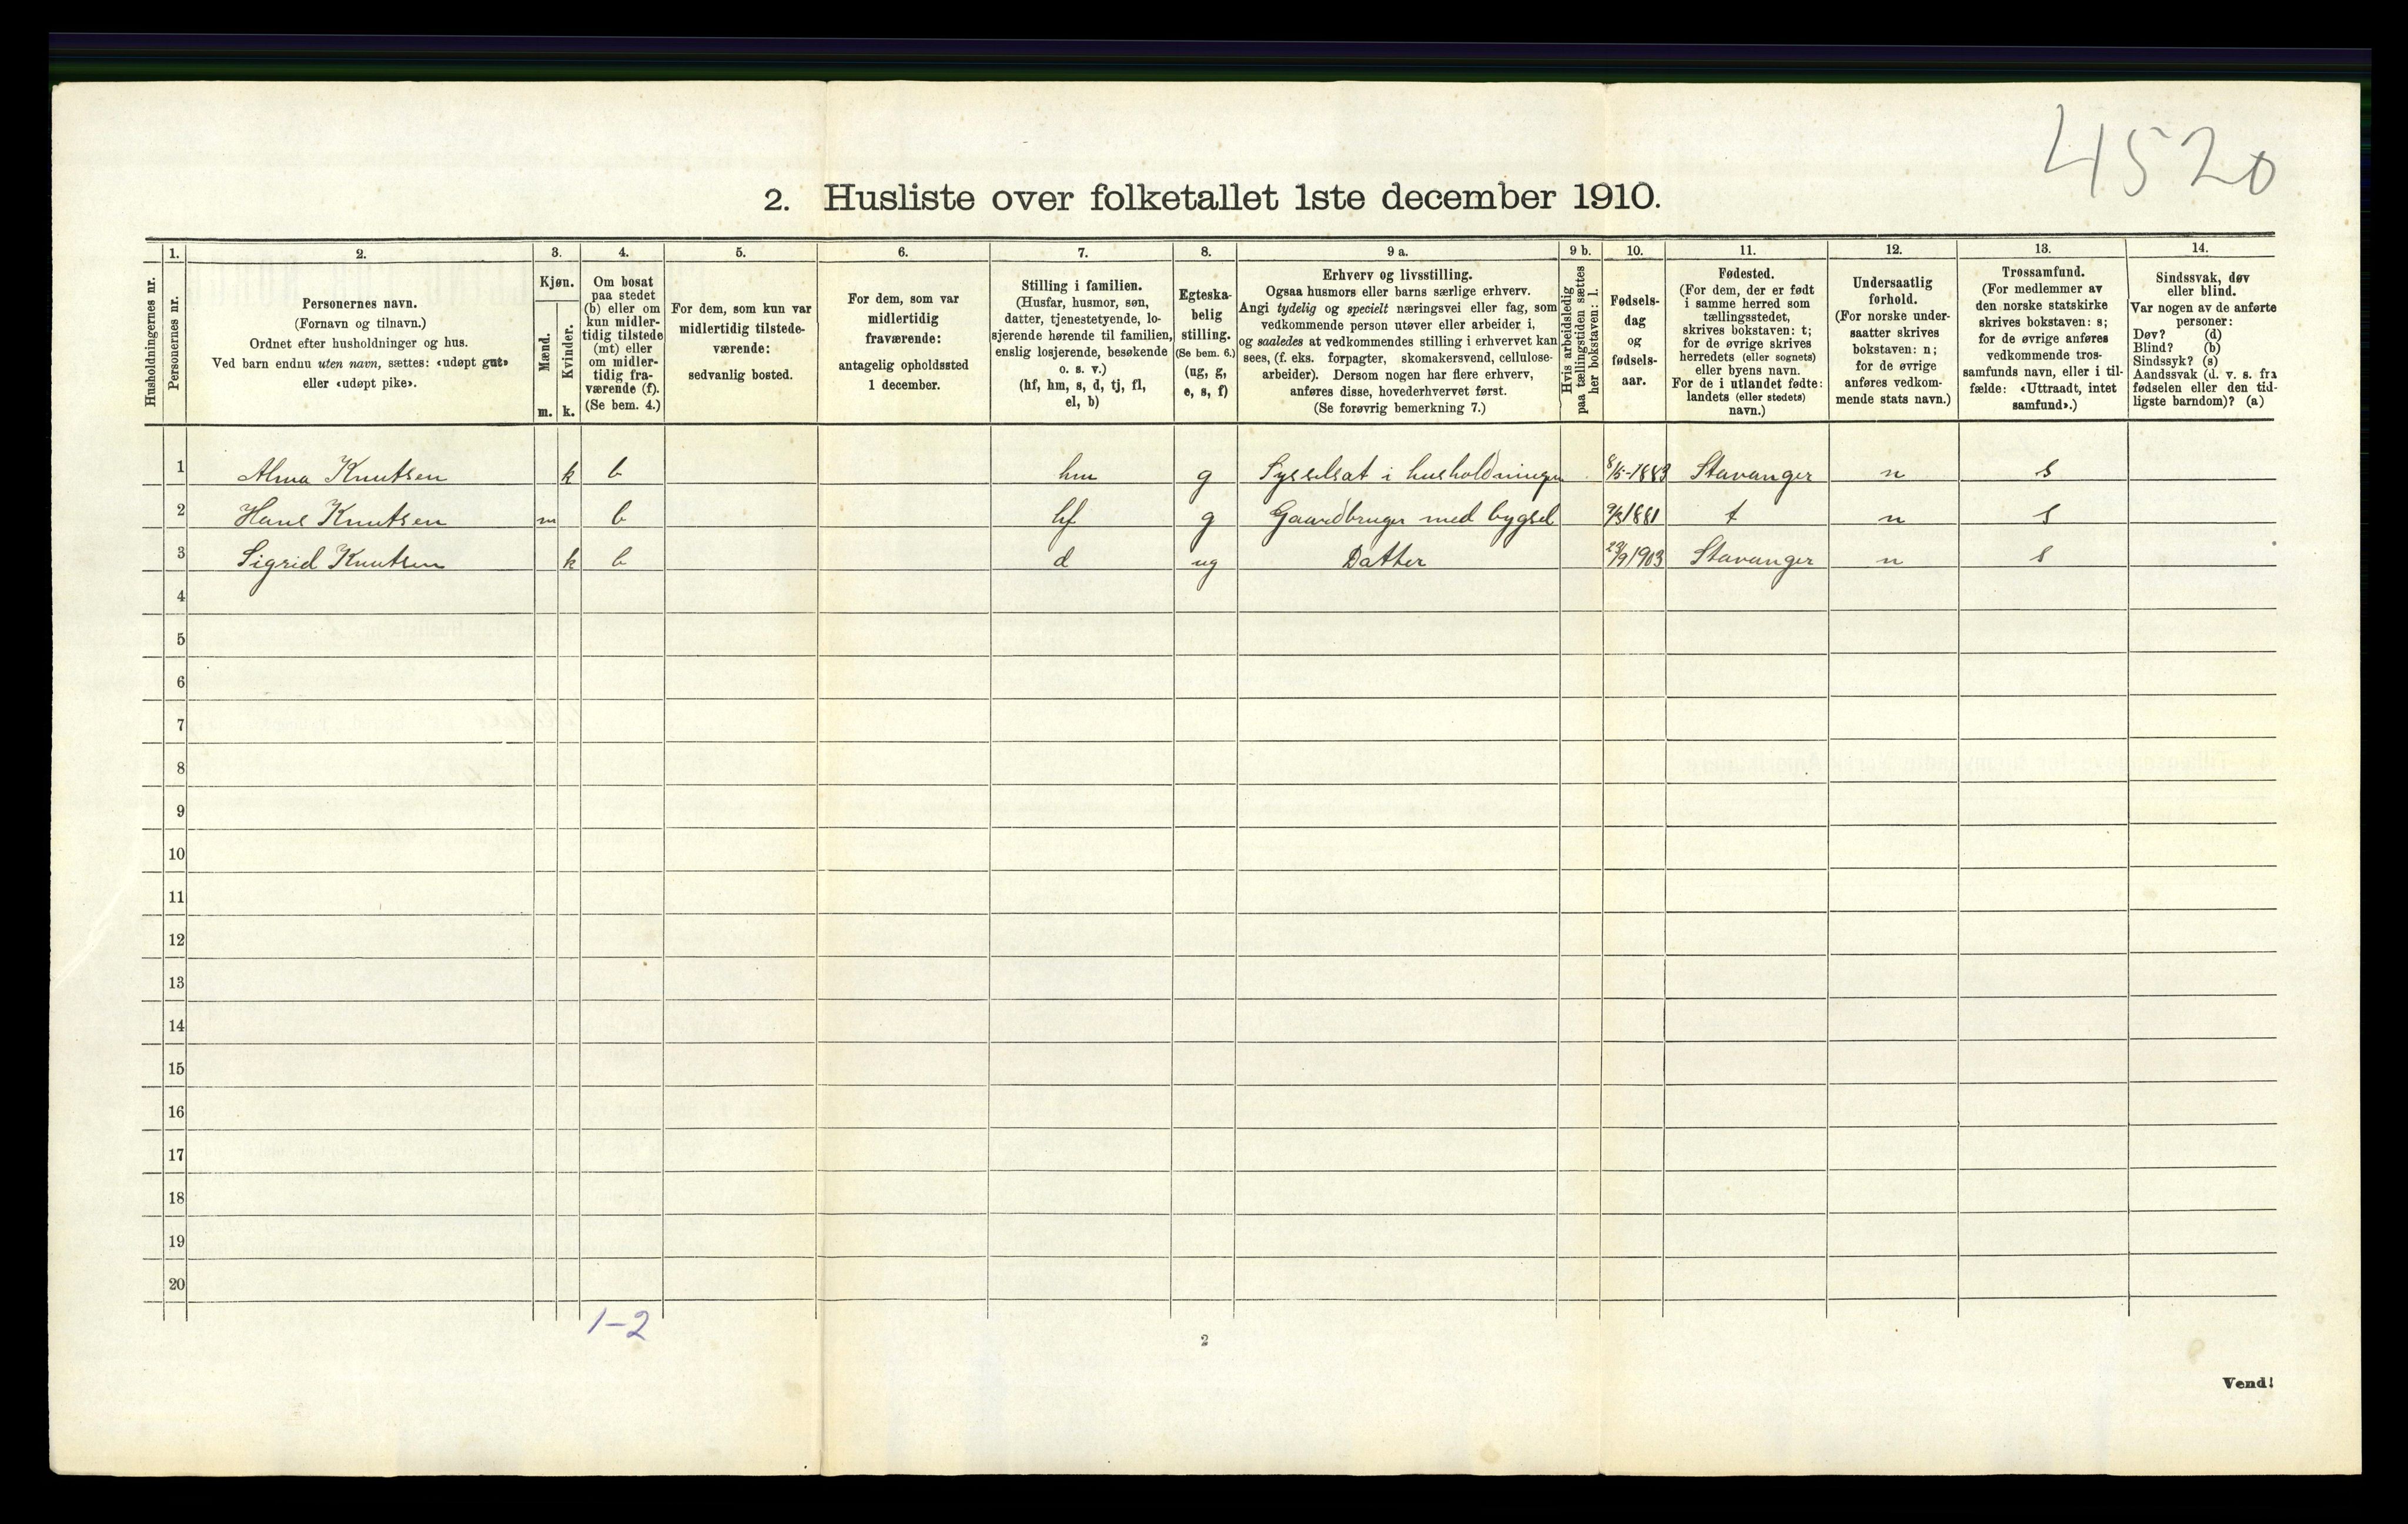 4520
2. Husliste over folketallet 1ste december 1910.
Husholdningernes nr.
1.
Personernes nr.
2.
Personernes navn.
(Fornavn og tilnavn.)
Ordnet efter husholdninger og hus.
Ved barn endnu uten navn, sættes: «udøpt gut»
eller «udøpt pike».
3.
Kjøn.
Mænd.
m.
Kvinder.
k.
4.
Om bosat
paa stedet
(b) eller om
kun midler-
tidig tilstede
(mt) eller
om midler-
tidig fra-
værende (f).
(Se bem. 4.)
5.
For dem, som kun var
midlertidig tilstede-
værende:
sedvanlig bosted.
6.
For dem, som var
midlertidig
fraværende:
antagelig opholdssted
1 december.
7.
Stilling i familien.
(Husfar, husmor, søn,
datter, tjenestetyende, lo-
sjerende hørende til familien,
enslig losjerende, besøkende
o. s. v.)
(hf, hm, s, d, tj, fl,
el, b)
8.
Egteska-
belig
stilling.
(Se bem. 6.)
(ug, g,
e, s, f)
9 a.
Erhverv og livsstilling.
Ogsaa husmors eller barns særlige erhverv.
Angi tydelig og specielt næringsvei eller fag, som
vedkommende person utøver eller arbeider i,
og saaledes at vedkommendes stilling i erhvervet kan
sees, (f. eks. forpagter, skomakersvend, cellulose-
arbeider). Dersom nogen har flere erhverv,
anføres disse, hovederhvervet først.
(Se forøvrig bemerkning 7.)
9 b.
Hvis arbeidsledig
paa tællingstiden sættes
her bokstaven: l.
10.
Fødsels-
dag
og
fødsels-
aar.
11.
Fødested.
(For dem, der er født
i samme herred som
tællingsstedet,
skrives bokstaven: t;
for de øvrige skrives
herredets (eller sognets)
eller byens navn.
For de i utlandet fødte:
landets (eller stedets)
navn.)
12.
Undersaatlig
forhold.
(For norske under-
saatter skrives
bokstaven: n;
for de øvrige
anføres vedkom-
mende stats navn.)
13.
Trossamfund.
(For medlemmer av
den norske statskirke
skrives bokstaven: s;
for de øvrige anføres
vedkommende tros-
samfunds navn, eller i til-
fælde: «Uttraadt, intet
samfund».)
14.
Sindssvak, døv
eller blind.
Var nogen av de anførte
personer:
Døv? (d)
Blind? (b)
Sindssyk? (s)
Aandssvak (d. v. s. fra
fødselen eller den tid-
ligste barndom)? (a)
1 Alma Knutsen k b hm g Sysselsat i husholdningen 8/5-1883 Stavanger n s
2 Hans Knutsen m b hf g Gaardbruger med bygsel 9/3 1881 t n s
3 Sigrid Knutsen k b d ug Datter 23/9 1903 Stavanger n s
4
5
6
7
8
9
10
11
12
13
14
15
16
17
18
19
20
1-2
2
Vend!